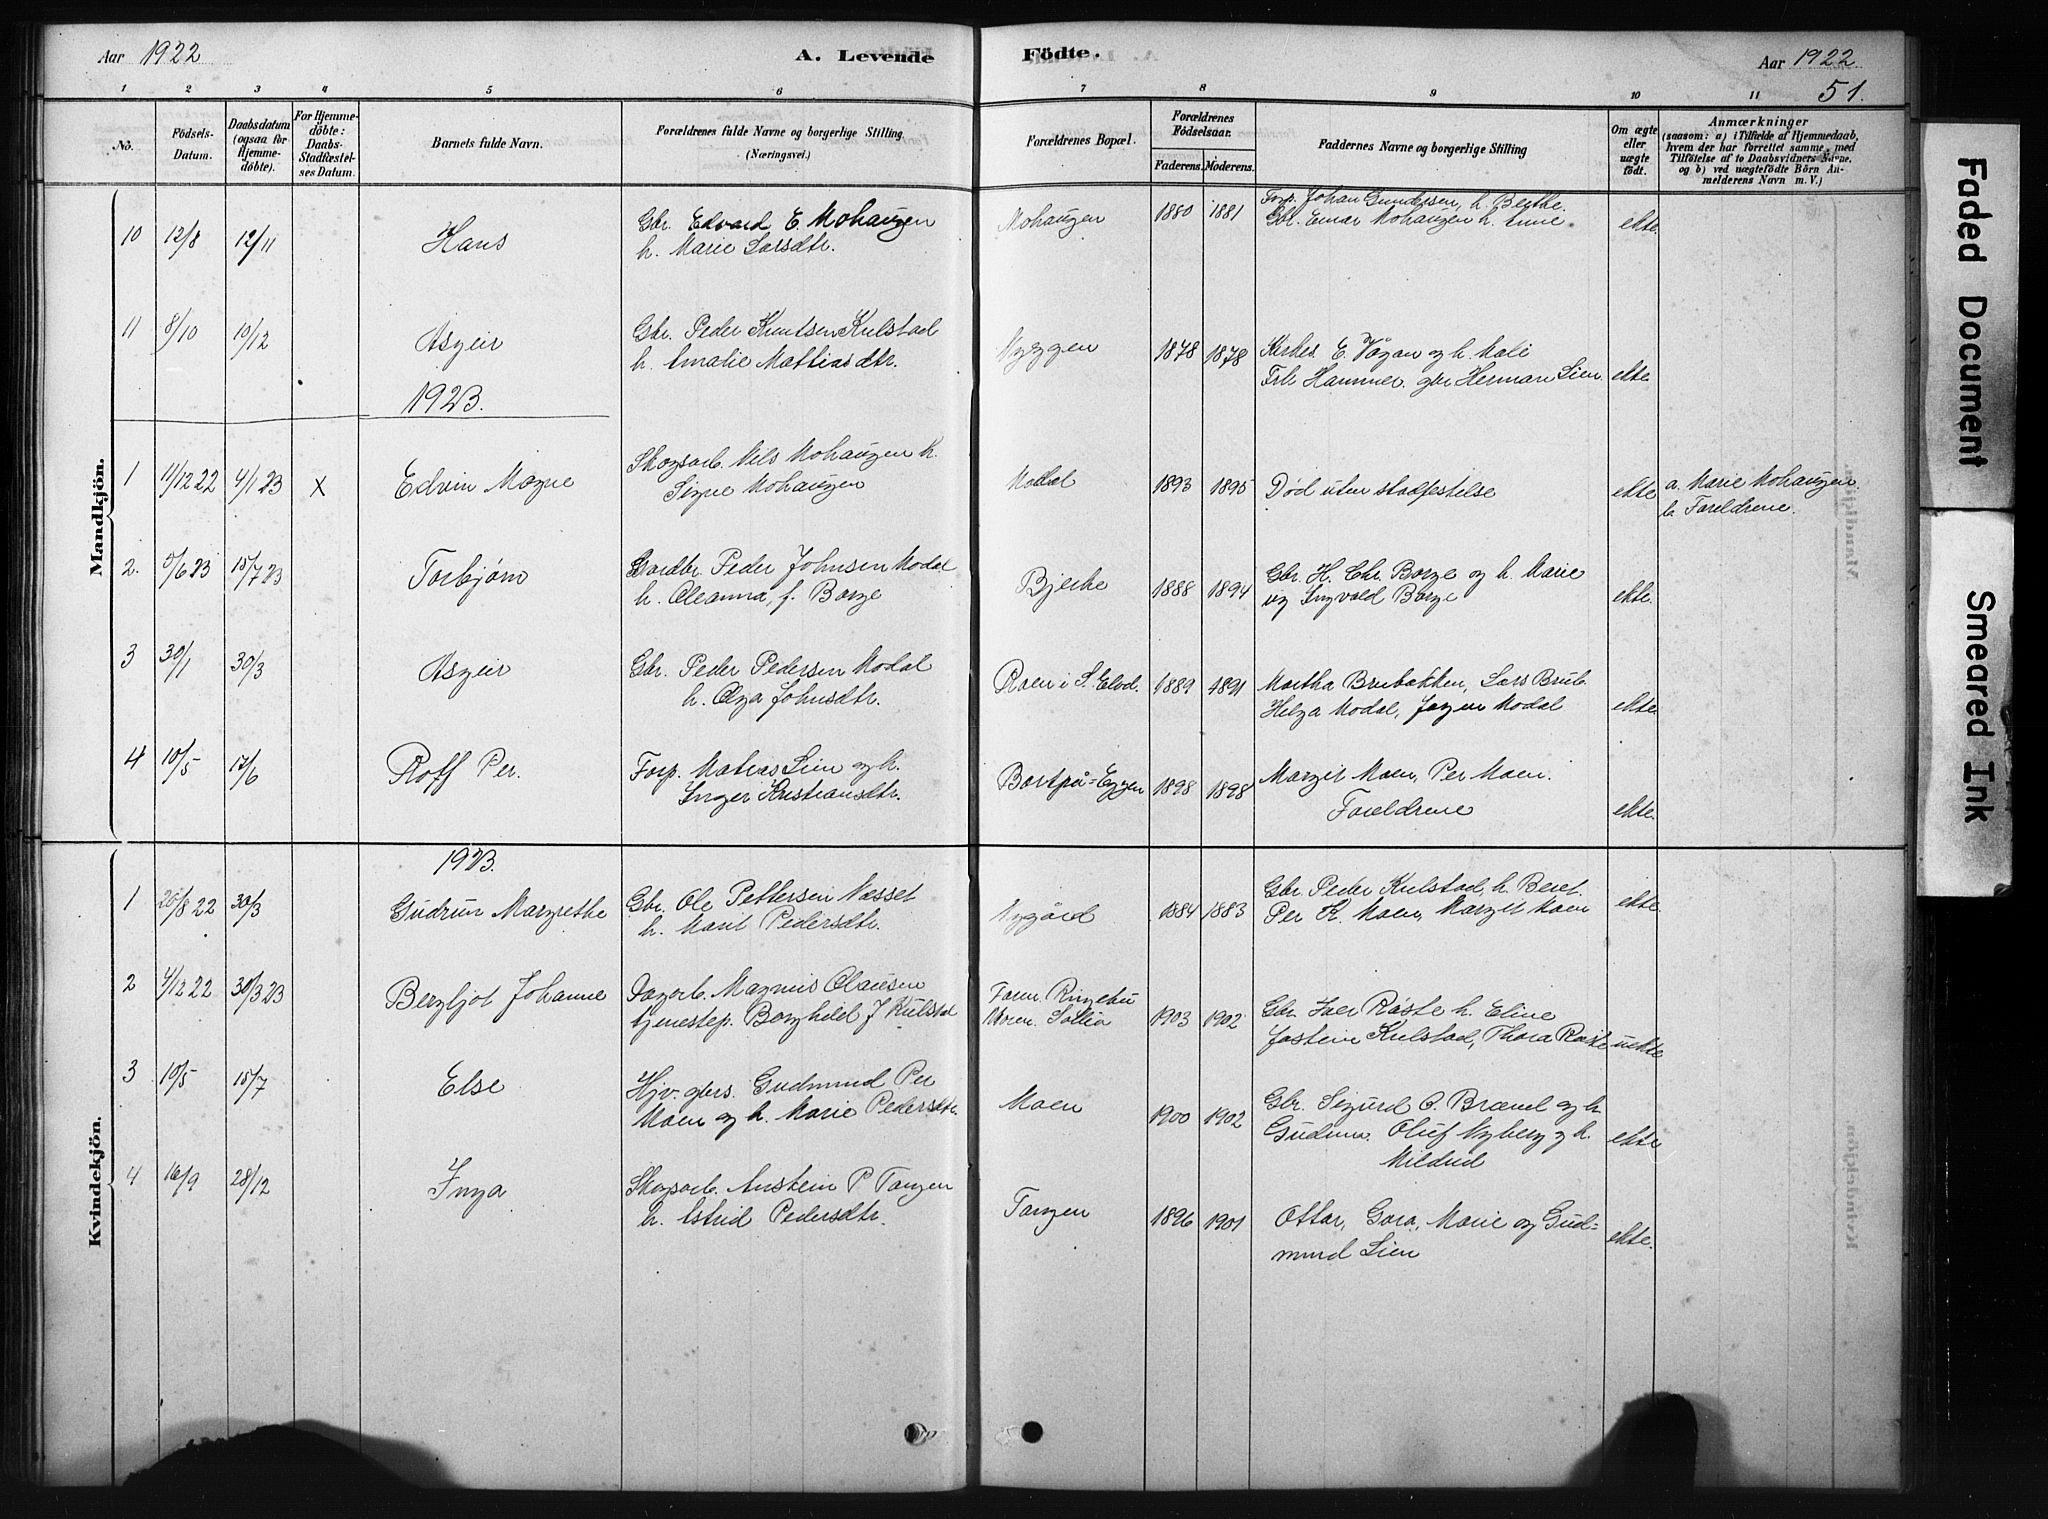 Aar 1922
A. Levende Födte.
Aar 1922
51.
1 2 3 4 5 6 7 8 9 10 11
No.
Födsels-Datum.
Daabsdatum (ogsaa for Hjemmedöbte).
For Hjemmedöbte: Daabs-Stadfæstelses Datum.
Barnets fulde Navn.
Forældrenes fulde Navne og borgerlige Stilling. (Næringsvei.)
Forældrenes Bopæl.
Forældrenes Födselsaar.
Faderens. Moderens.
Faddernes Navne og borgerlige Stilling
Om ægte eller uægte födt.
Anmærkninger
(saasom: a) i Tilfælde af Hjemmedaab, hvem der har forrettet samme, med Tilföielse af to Daabsvidners Navne. og b) ved uægtefödte Börn Anmelderens Navn m. V.)
Mandkjön.
10 12/8 12/11 Hans Gbr. Edvard E. Mohaugen Mohaugen 1880 1881 Forp. Johan Gundersen, h. Berthe
h. Marie Larsdtr. Gbr. Einar Mohaugen h. Anne. ekte.
11 8/10 10/12 Asgeir Gbr. Peder Knutsen Kulstad Nyggen 1878 1878 Kirkes. E. Vågan og h. Mali
h. Amalie Mattiasdtr. Frk. Hammer. gbr Herman Lien. ekte.
1923.
1 11/12 22 4/1 23 x Edvin Magne Skogsarb. Nils Mohaugen h. Modal 1893 1895 Død uten stadfestelse ekte a. Marie Mohaugen
Signe Mohaugen b. Foreldrene.
2. 5/6 23 15/7 23 Torbjørn Gardbr. Peder Johnsen Modal Bjerke 1888 1894 Gbr. H. Chr. Borge og h. Marie
h. Oleanna, f. Borge og Ingvald Borge ekte.
3 30/1 30/3 Asgeir Gbr. Peder Pedersen Modal Roen i S. Elvd. 1889 1891 Martha Brubakken, Lars Brub.
h. Olga Johnsdtr. Helga Modal, Jørgen Modal ekte.
4 10/5 17/6 Rolf Per. Forp. Matias Lien og h. Bortpå-Eggen 1898 1898 Margit Moen, Per Moen.
Inger Kristiansdtr. Foreldrene ekte.
Kvindekjön.
1923.
1 26/8 22 30/3 Gudrun Margrethe Gbr. Ole Pettersen Nesset Nygård 1884 1883 Gbr. Peder Kulstad, h. Beret. ekte.
h. Marit Pedersdtr. Per K. Moen, Margit Moen
2 4/12 22 30/3 23 Bergljot Johanne Dagarb. Magnus Olausen Faren. Ringebu 1903 1902 Gbr. Iver Røste h. Eline
tjenestep. Borghild J Kulstad Moren. Sollia Jostein Kulstad, Thora Røste uekte
3 10/5 15/7 Else Hjv. gbrs. Gudmund Per Moen 1900 1902 Gbr. Sigurd O. Brænd og h.
Moen og h. Marie Pedersdtr. Gudrun. Oluf Nyberg og h. ekte
Mildrid
4 16/9 28/12 Inga Skogsarb. Anstein P Tangen Tangen 1896 1901 Ottar, Gora, Marie og Gud=
h. Astrid Pedersdtr. mund Lien ekte.
Faded Document
Smeared Ink